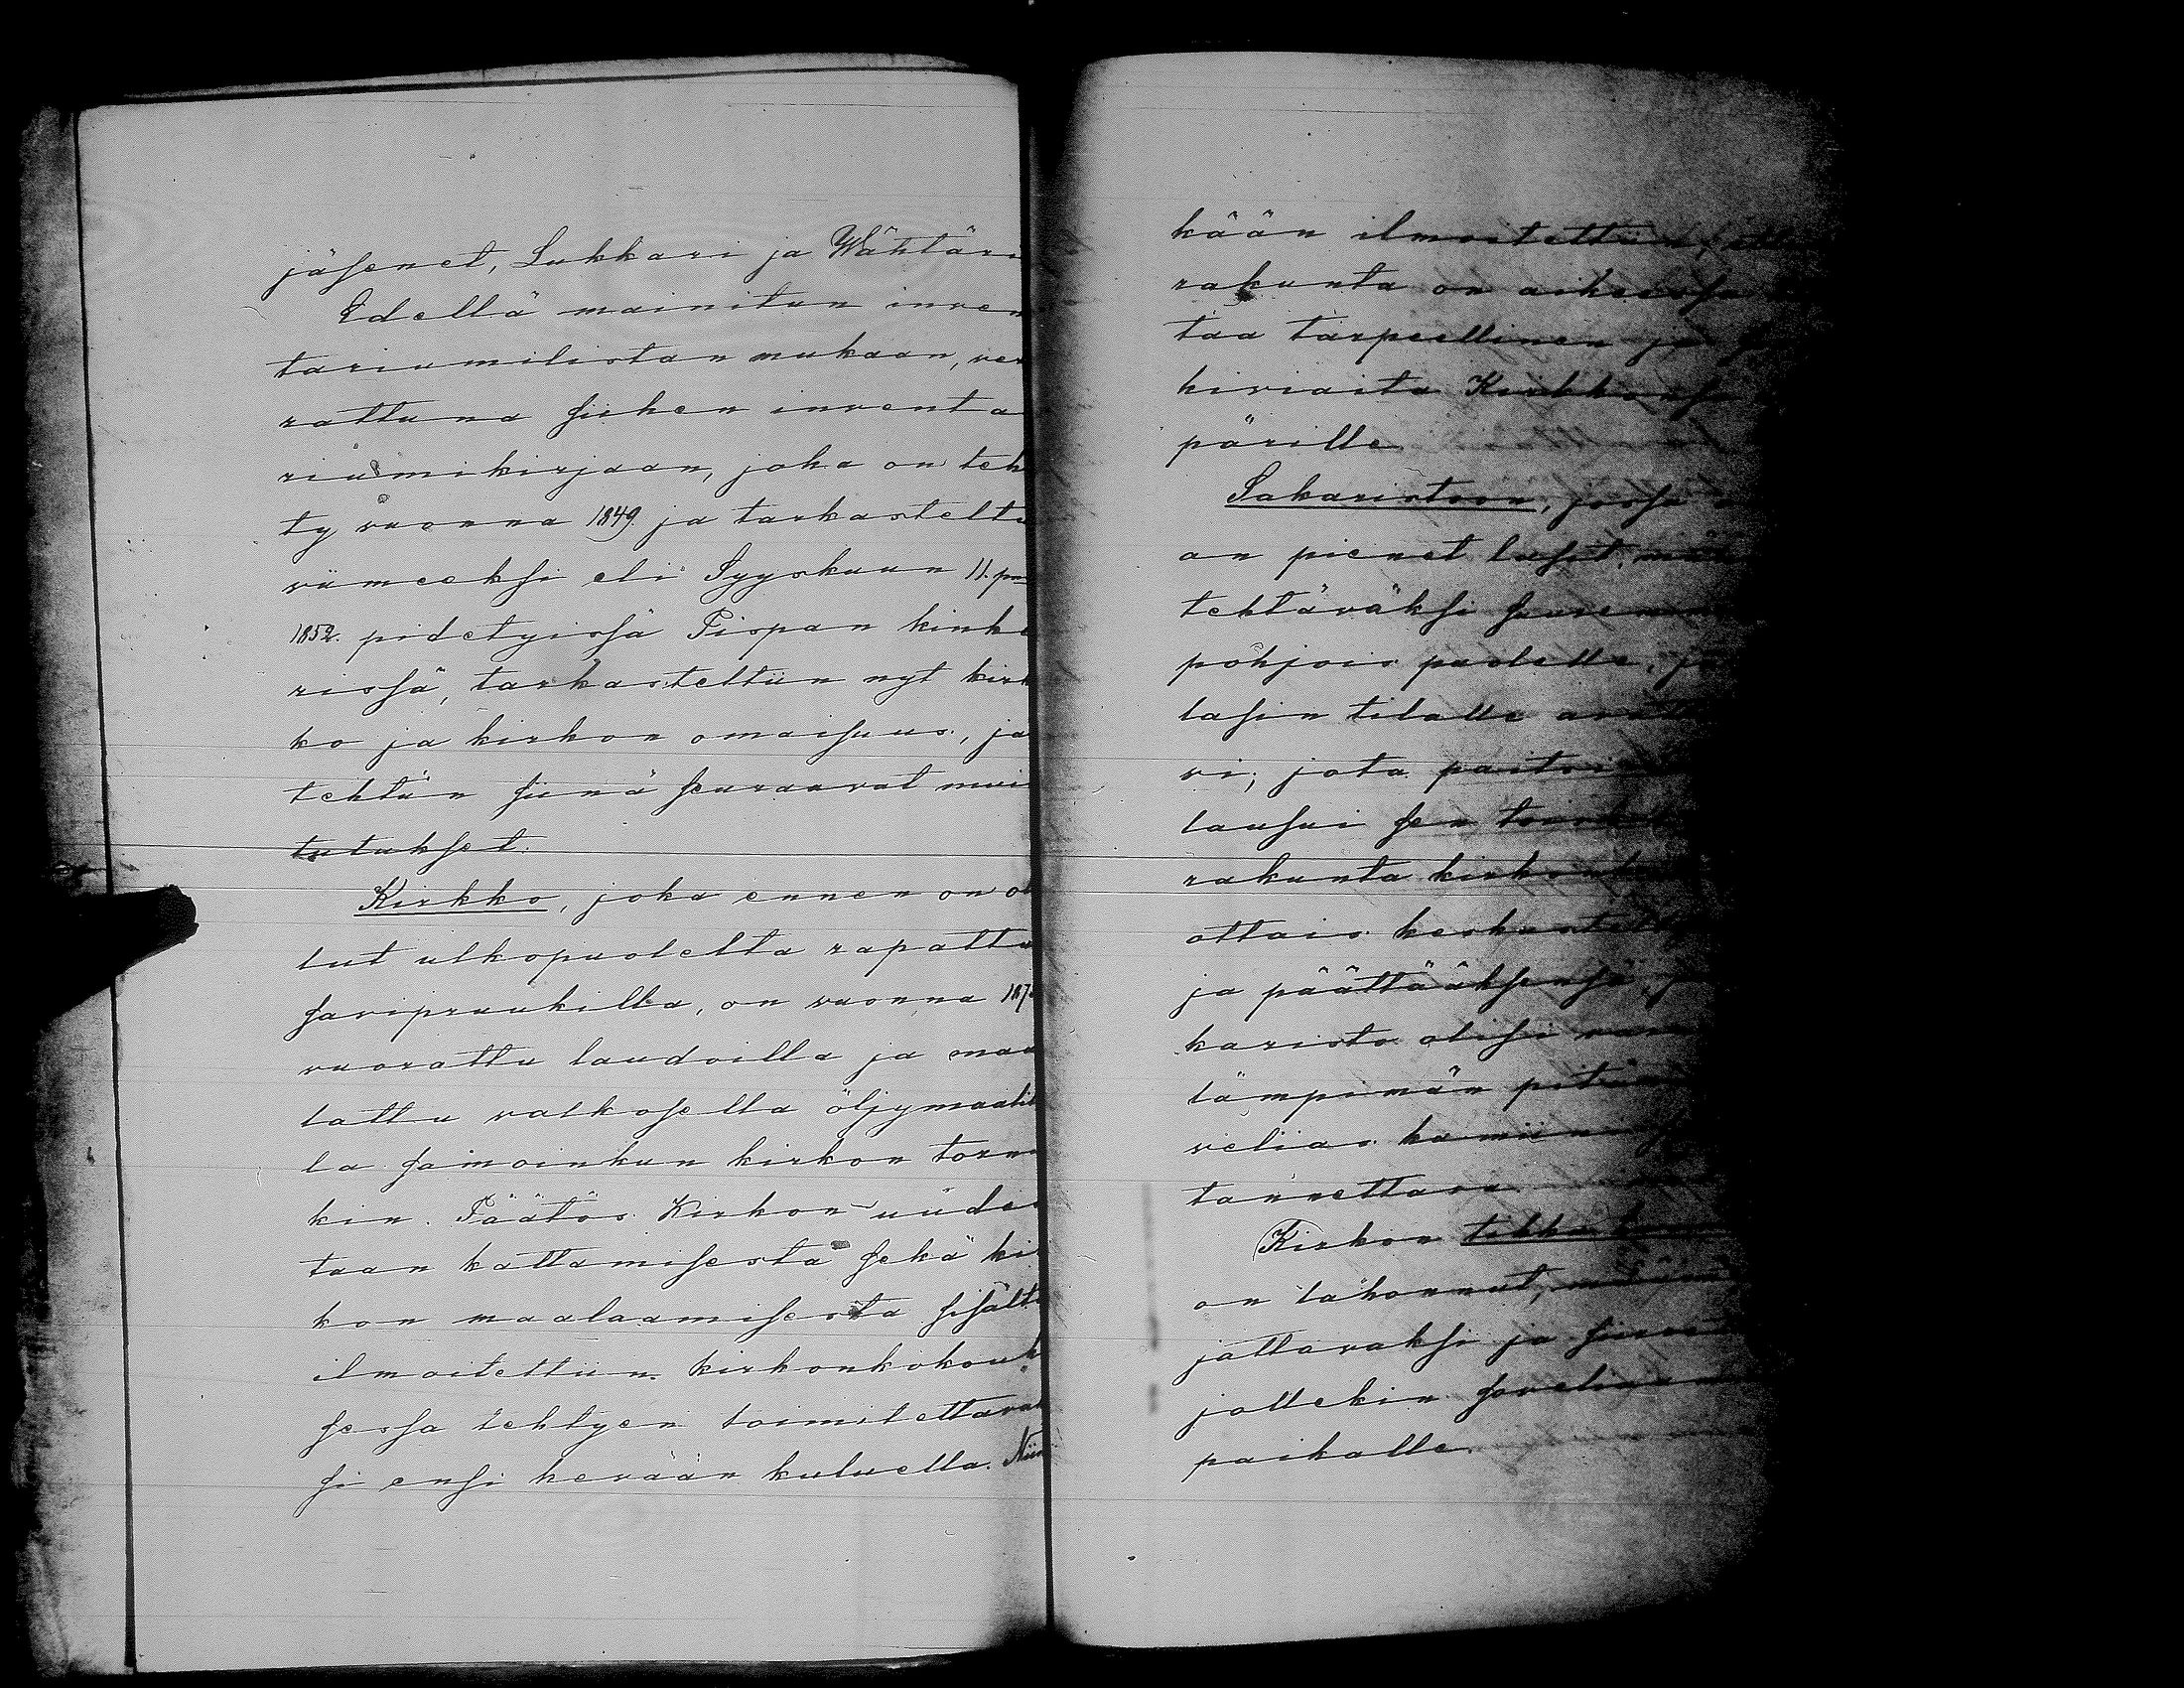 jäsenet, Lukkari ja Wähtäri
Edellä mainitun inven
tariumilistan mukaan, ver
rattuna siihen inventa
riumikirjaan, joka on teh
ty vuonna 1849 ja tarkasteltu
viimeeksi eli Syyskuun 11. p
1852. pidetyissä Pispan kinke
rissä, tarkasteltiin nyt kirk
ko ja kirkon omaisuus, ja
tehtiin siinä seuraavat mui
tutukset.
Kirkko, joka ennen on ol
lut ulkopuolelta rapattu
savipruukilla, on vuonna
vuorattu laudoilla ja maa
lattu valkosella öljymaalil
la samoinkun kirkon torni
kin. Päätös Kirkon uudes
taan kattamisesta sekä kir
kon maalaamisesta sisältä
ilmoitettiin kirkonkokouk
sessa tehtyen toimitettavak
si ensi kevään kuluella. Niin
kään ilmoitettiin, että
rakunta on aikeissa
taa tarpeellinen ja
kiviaita Kirkkonsa
pärille
Sakaristoon, jossa
on pienet lasit,
tehtäväksi suurempi
pohjois puolelle, ja
lasin tilalle
vi; jota
lausui sen
rakunta
ottais keskusteltavaksi
ja päättääksensä,
karisto olisi
lämpimän
veliias kamiina
tannettava
Kirkon
on lahonnut,
jättäväksi ja
jollekin soveliaa
paikalle